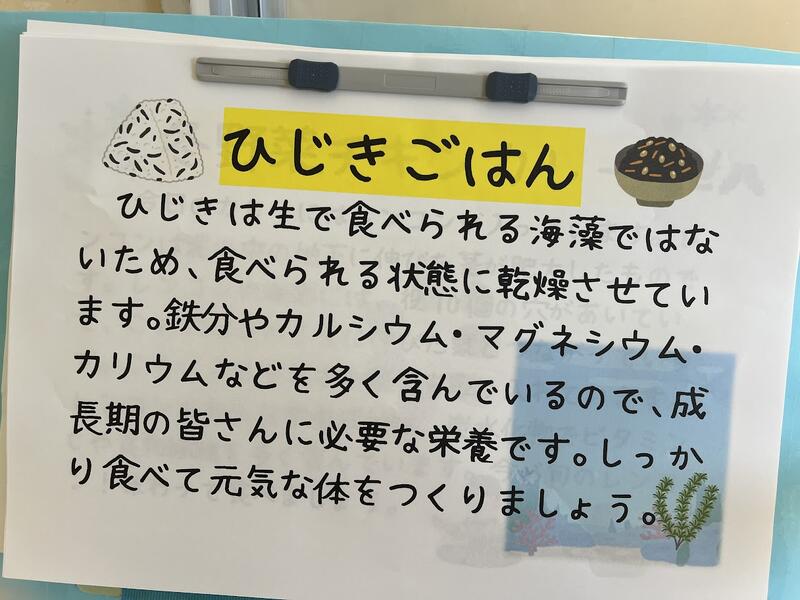 ひじきごはん
ひじきは生で食べられる海藻ではな
いため、食べられる状態に乾燥させてい
ます。鉄分やカルシウム・マグネシウム・
カリウムなどを多く含んでいるので、成
長期の皆さんに必要な栄養です。しっか
り食べて元気な体をつくりましょう。